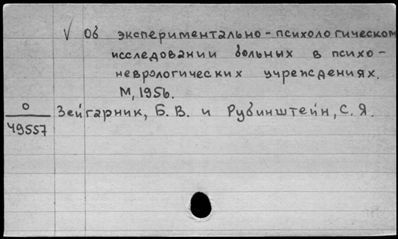 √ Об экспериментально-психологическом
исследовании больных в психо-
неврологических учреждениях.
М, 1956.
О
49557
Зейгарник, Б. В. и Рубинштейн, С. Я.